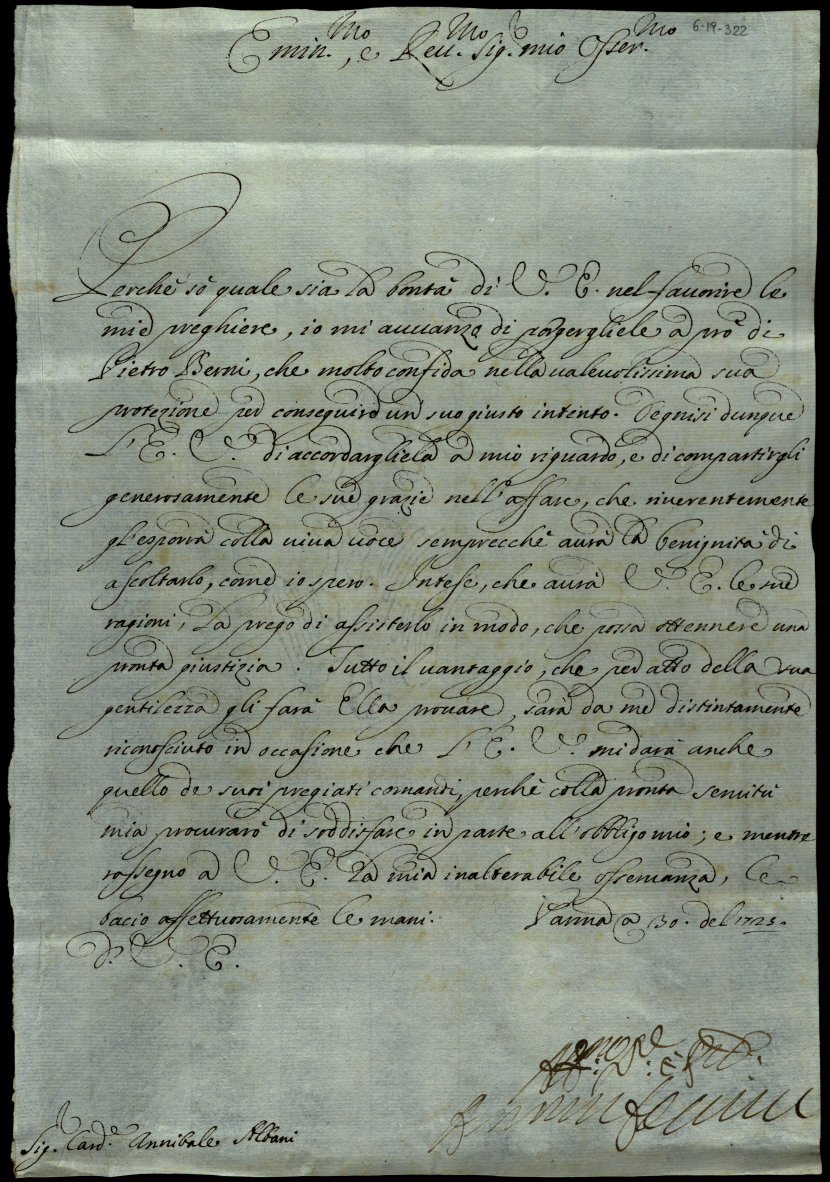 6-19-322
Emin.mo, e Reu.mo Sig.r mio Osser.mo
Perchè sò quale sia la bontà di V. E. nel fauorire le
mie preghiere, io mi auuanzo di porgergliele a prò di
Pietro Berni, che molto confida nella ualeuolissima sua
protezione per conseguire un suo giusto intento. Degnisi dunque
l'E. V. di accordargliela a mio riguardo, e di compartirgli
generosamente le sue grazie nell'affare, che riuerentemente
gl'esporrà colla uiua uoce semprecchè aurà la benignità di
ascoltarlo, come io spero. Intese, che aurà V. E. le sue
ragioni, la prego di assisterlo in modo, che possa ottennere una
pronta giustizia. Tutto il uantaggio, che per atto della sua
gentilezza gli farà Ella prouare, sarà da me distintamente
riconosciuto in occasione che l'E. V. mi darà anche
quello de suoi pregiati comandi, perchè colla pronta seruitù
mia procurarò di soddisfare in parte all'obbligo mio; e mentre
rassegno a V. E. la mia inalterabile osseruanza, le
bacio affettuosamente le mani. Parma a 30. del 1723.
D. V. E.
Sig.r Card.e Annibale Albani